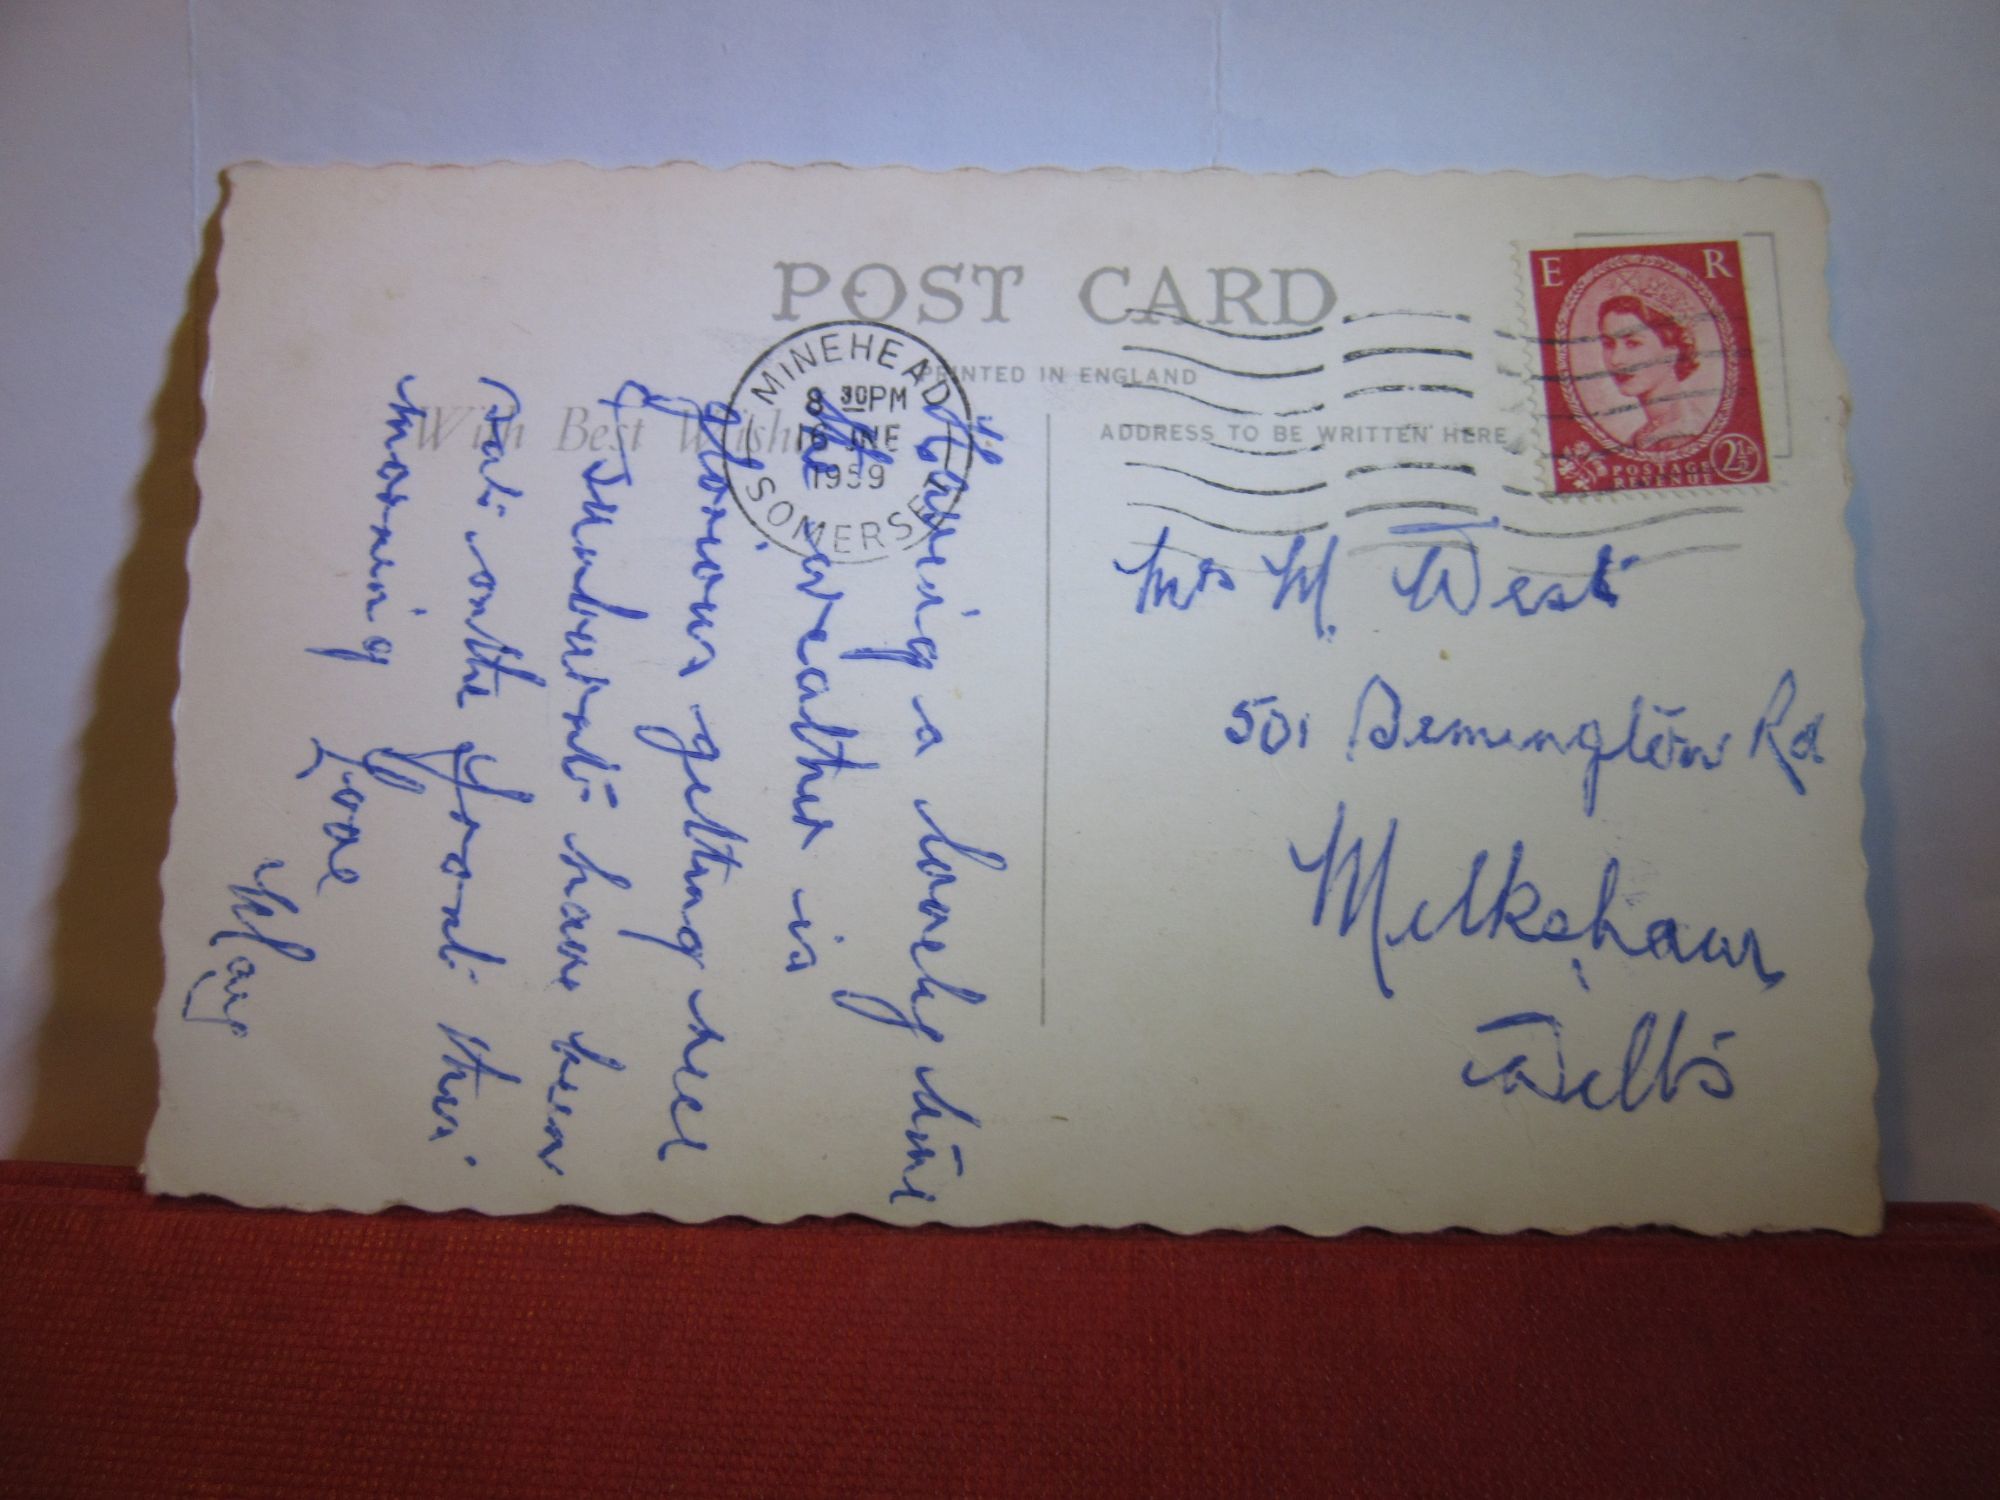 POST CARD
PRINTED IN ENGLAND
With Best Wishes
ADDRESS TO BE WRITTEN HERE
MINEHEAD
8 30PM
16 JNE
1959
SOMERSET
E R
POSTAGE
REVENUE
2½
Having a lovely time
the weather is
glorious getting nice
& Sunburnt have been
Sat on the front this
morning Love
May
Mrs M. West
501 Semington Rd
Melksham
Wilts